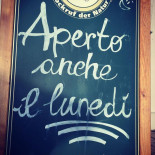 ockruf der Natur
Aperto
anche
il lunedí